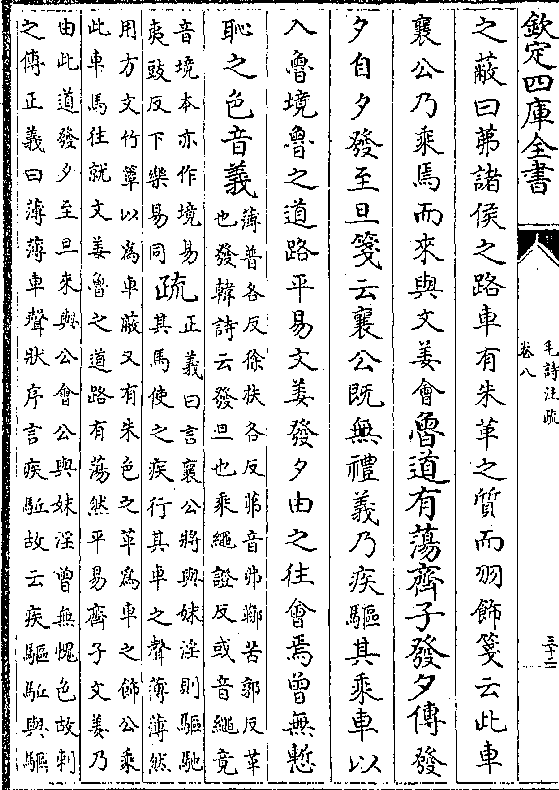 欽定四庫全書
毛詩注疏
卷八
三十二
之蔽曰茀諸侯之路車有朱革之質而羽飾箋云此車
襄公乃乘焉而來與文姜會魯道有蕩齊子發夕傳發
夕自夕發至旦箋云襄公既無禮義乃疾驅其乘車以
入魯境魯之道路平易文姜發夕由之往會焉曾無慙
恥之色音義薄普各反徐扶各反茀音弗鞹苦郭反革
也發韓詩云發旦也乘繩證反或音繩竟
音境本亦作境易
夷豉反下樂易同疏正義曰言襄公將與妹淫則驅馳
其馬使之疾行其車之聲薄薄然
用方文竹簟以為車蔽又有朱色之革為車之飾公乘
此車馬往就文姜魯之道路有蕩然平易齊子文姜乃
由此道發夕至旦來與公會公與妹淫曾無愧色故刺
之傳正義曰薄薄車聲狀序言疾駈故云疾驅駈與驅